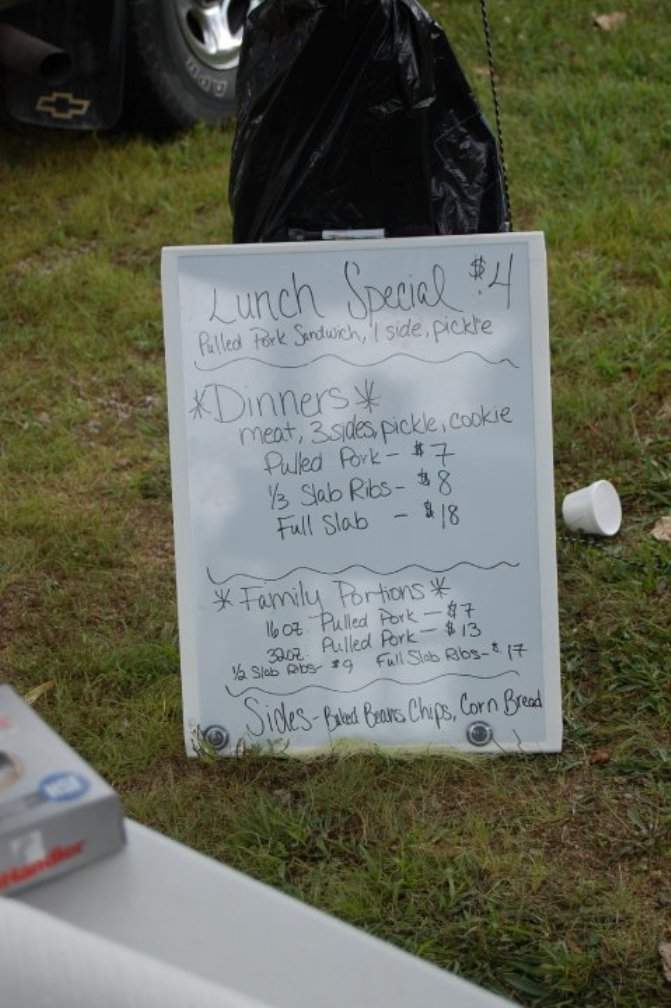 Lunch Special $4
Pulled Pork Sandwich, 1 side, pickle
*Dinners*
meat, 3 sides, pickle, cookie
Pulled Pork - $7
1/3 Slab Ribs - $8
Full Slab - $18
* Family Portions *
16 oz. Pulled Pork - $7
32oz. Pulled Pork - $13
1/2 Slab Ribs - $9 Full Slab Ribs - $17
Sides - Baked Beans, Chips, Corn Bread
Handler